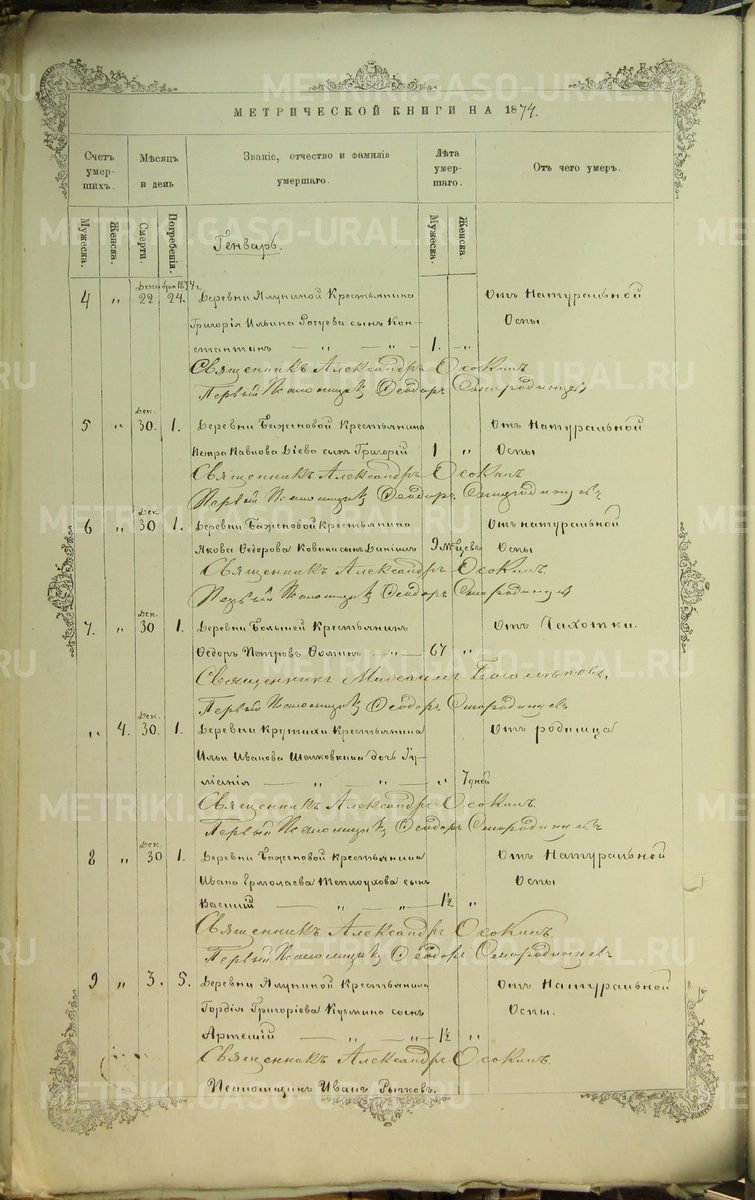 МЕТРИЧЕСКОЙ КНИГИ НА 1874.
Счетъ умер-шихъ.
Мѣсяцъ и день
Званіе, отчество и фамилія умершаго.
Лѣта умер-шаго.
Отъ чего умеръ.
Мужеска. Женска. Смерти. Погребенія. Мужеска. Женска.
Генварь.
4 „ 22 24. Деревни Ялуниной Крестьянина Отъ Натуральной
Григорія Ильина сынъ Кон- Оспы.
стантинъ — „ — „ — 1. — „
Священникъ Александръ Осокинъ
Первый Псаломщикъ Ѳеодоръ Смородинцевъ
Дек.
5 „ 30. 1. Деревни Баженовой Крестьянина Отъ Натуральной
Петра Павлова сынъ Григорій 1 „ Оспы
Священникъ Александръ Осокинъ
Первый Псаломщикъ Ѳеодоръ Смородинцевъ
Дек.
6 „ 30 1. Деревни Баженовой Крестьянина Отъ натуральной
Якова Ѳедорова сынъ Даніилъ 9 Оспы
Священникъ Александръ Осокинъ.
Первый Псаломщикъ Ѳеодоръ Смородинцевъ
Дек.
7. „ 30 1. Деревни Большей Крестьянинъ Отъ Чахотки.
Ѳедоръ Петровъ „ — 67 „
Священникъ Михаилъ
Первый Псаломщикъ Ѳеодоръ Смородинцевъ
Дек.
„ 4. 30. 1. Деревни Крутихи Крестьянина Отъ родимца
Ильи Иванова дочь Іу-
ліанія — „ — „ — „ 7 дней
Священникъ Александръ Осокинъ.
Первый Псаломщикъ Ѳеодоръ Смородинцевъ
Дек.
8 „ 30 1. Деревни Баженовой Крестьянина Отъ Натуральной
Ивана Ермолаева Теплоухова сынъ Оспы
Василій — „ — „ — 1½ „
Священникъ Александръ Осокинъ.
Первый Псаломщикъ Ѳеодоръ Смородинцевъ
9 „ 3. 5. Деревни Ялуниной Крестьянина Отъ Натуральной
Гордія Григоріева Кузмина сынъ Оспы.
Артемій — „ — „ — 1½ „
Священникъ Александръ Осокинъ.
Псаломщикъ Иванъ Рычковъ.
METRIKI.GASO-URAL.RU